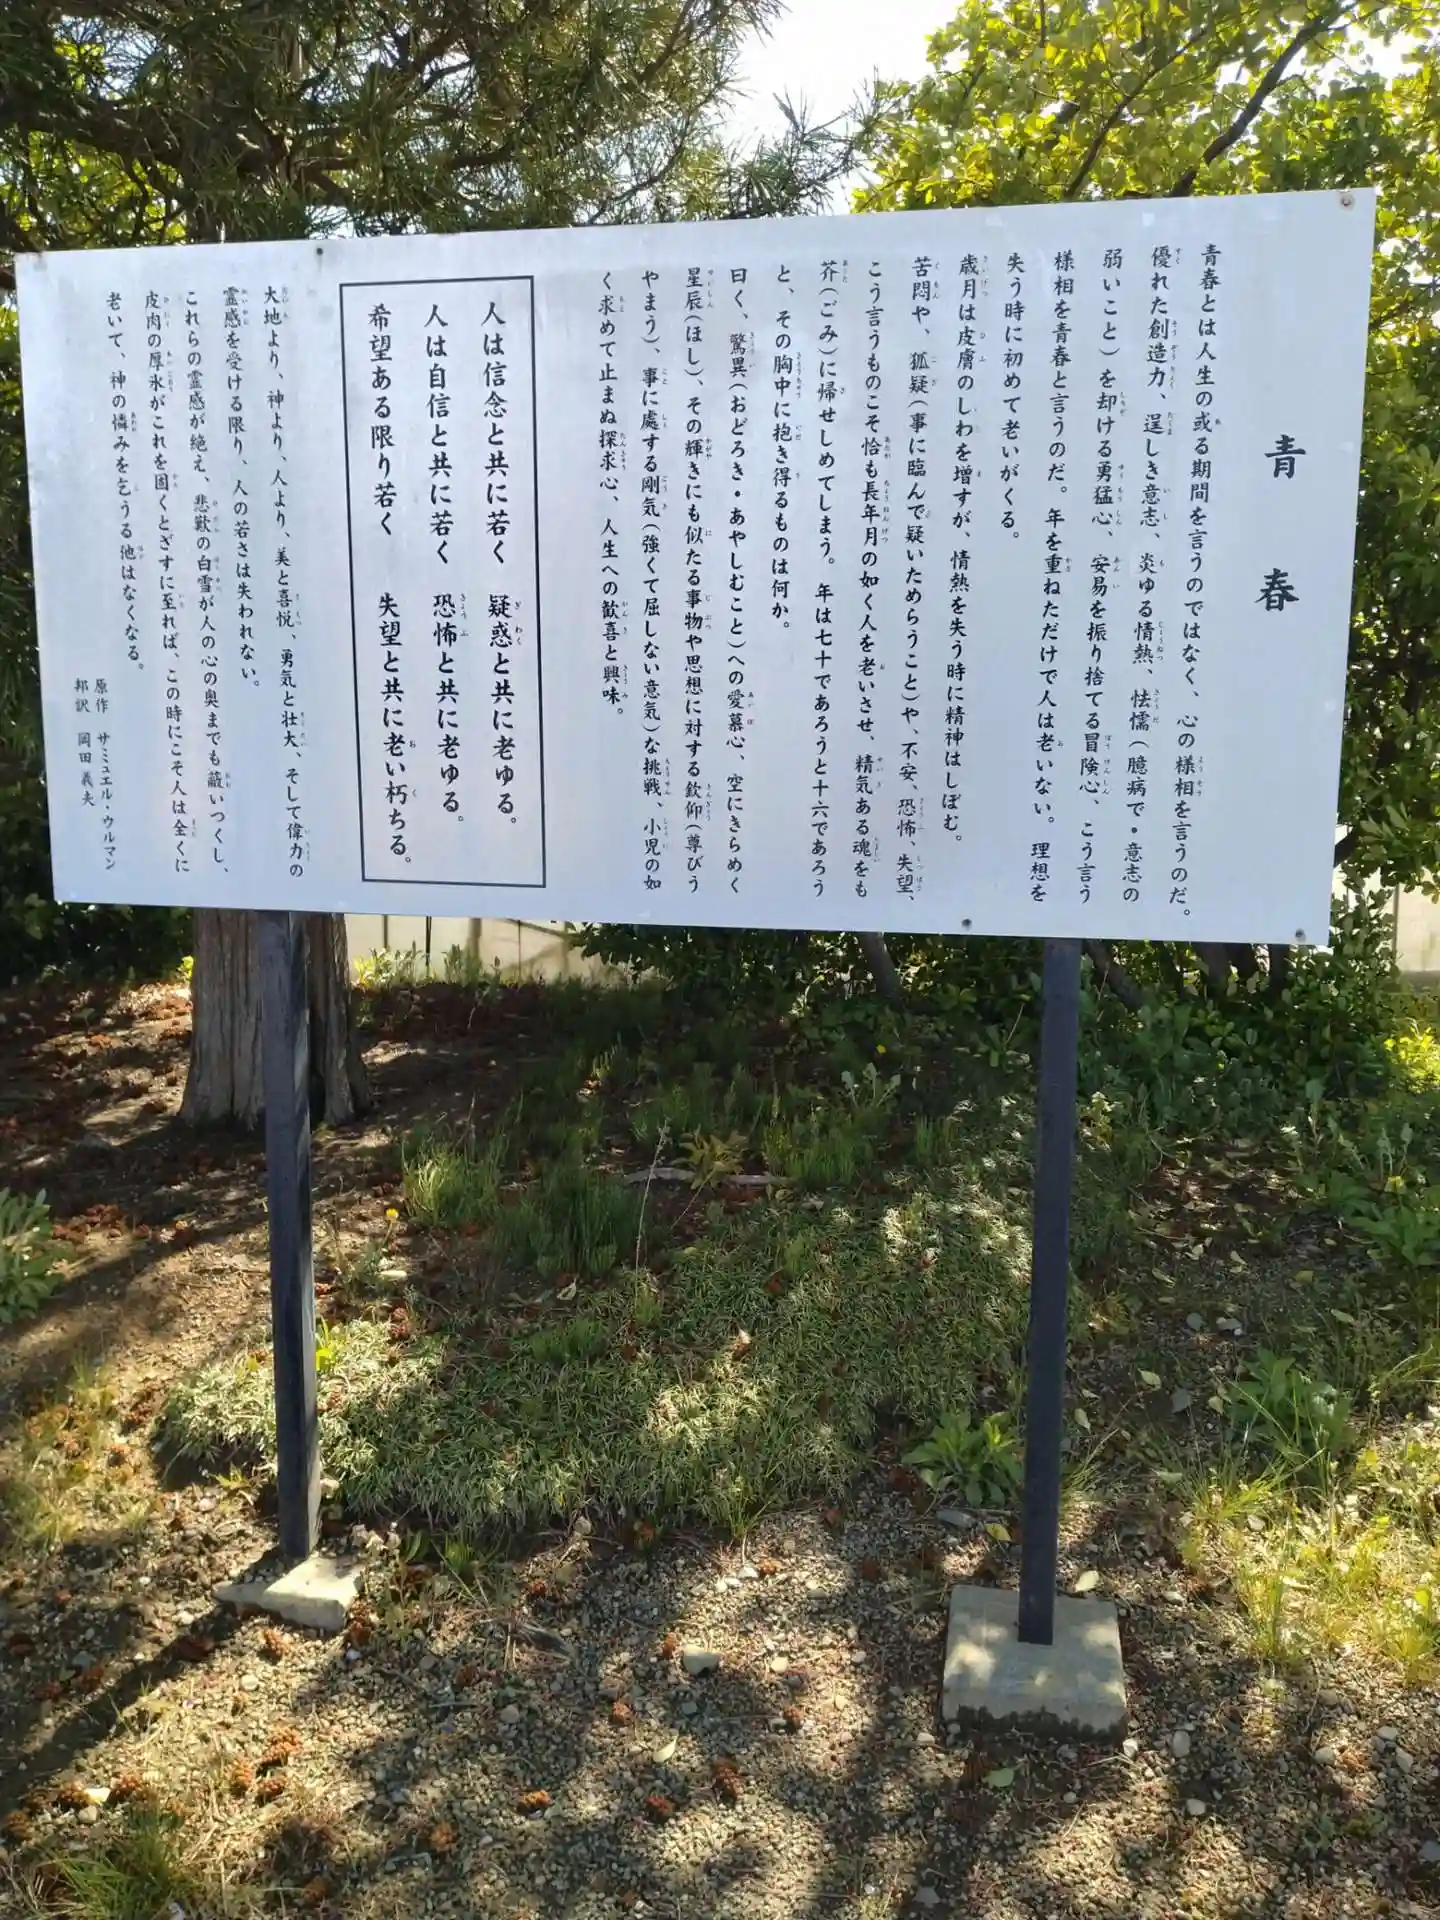 青春
青春とは人生の或る期間を言うのではなく、心の様相を言うのだ。
優れた創造力、逞しき意志、炎ゆる情熱、怯懦(臆病で・意志の
弱いこと)を却ける勇猛心、安易を振り捨てる冒険心、こう言う
様相を青春と言うのだ。年を重ねただけで人は老いない。理想を
失う時に初めて老いがくる。
歳月は皮膚のしわを増すが、情熱を失う時に精神はしぼむ。
苦悶や、狐疑(事に臨んで疑いためらうこと)や、不安、恐怖、失望、
こう言うものこそ恰も長年月の如く人を老いさせ、精気ある魂をも
芥(ごみ)に帰せしめてしまう。年は七十であろうと十六であろう
と、その胸中に抱き得るものは何か。
曰く、驚異(おどろき・あやしむこと)への愛慕心、空にきらめく
星辰(ほし)、その輝きにも似たる事物や思想に対する欽仰(尊びう
やまう)、事に處する剛気(強くて屈しない意気)な挑戦、小児の如
く求めて止まぬ探求心、人生への歓喜と興味。
人は信念と共に若く 疑惑と共に老ゆる。
人は自信と共に若く 恐怖と共に老ゆる。
希望ある限り若く 失望と共に老い朽ちる。
大地より、神より、人より、美と喜悦、勇気と壮大、そして偉力の
霊感を受ける限り、人の若さは失われない。
これらの霊感が絶え、悲獣の白雪が人の心の奥までも蔽いつくし、
皮肉の厚氷がこれを固くとざすに至れば、この時にこそ人は全くに
老いて、神の憐みを乞うる他はなくなる。
原作 サミュエル・ウルマン
邦訳 岡田義夫